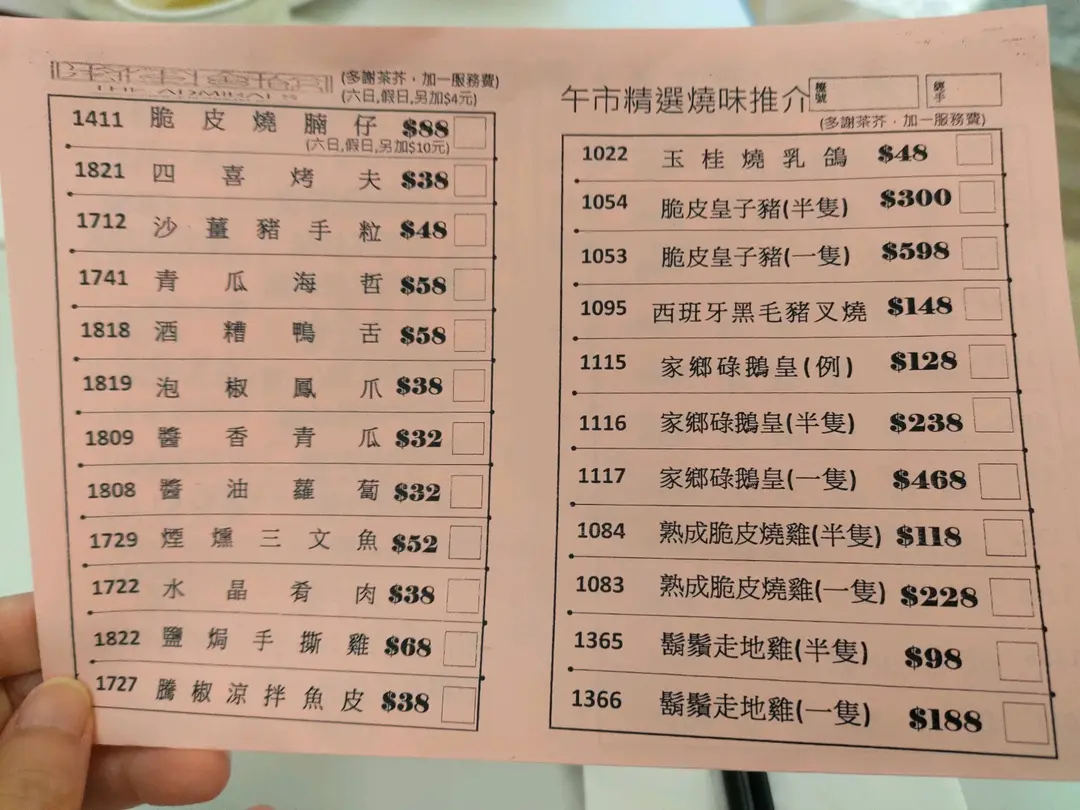 THE ADMIRAL'S
(多謝茶芥,加一服務費)
(六日,假日,另加$4元)
1411 脆皮燒腩仔 $88
(六日,假日,另加$10元)
1821 四喜烤夫 $38
1712 沙薑豬手粒 $48
1741 青瓜海哲 $58
1818 酒糟鴨舌 $58
1819 泡椒鳳爪 $38
1809 醬香青瓜 $32
1808 醬油蘿蔔 $32
1729 煙燻三文魚 $52
1722 水晶肴肉 $38
1822 鹽焗手撕雞 $68
1727 騰椒涼拌魚皮 $38
午市精選燒味推介
(多謝茶芥,加一服務費)
1022 玉桂燒乳鴿 $48
1054 脆皮皇子豬(半隻) $300
1053 脆皮皇子豬(一隻) $598
1095 西班牙黑毛豬叉燒 $148
1115 家鄉碌鵝皇(例) $128
1116 家鄉碌鵝皇(半隻) $238
1117 家鄉碌鵝皇(一隻) $468
1084 熟成脆皮燒雞(半隻) $118
1083 熟成脆皮燒雞(一隻) $228
1365 鬍鬚走地雞(半隻) $98
1366 鬍鬚走地雞(一隻) $188